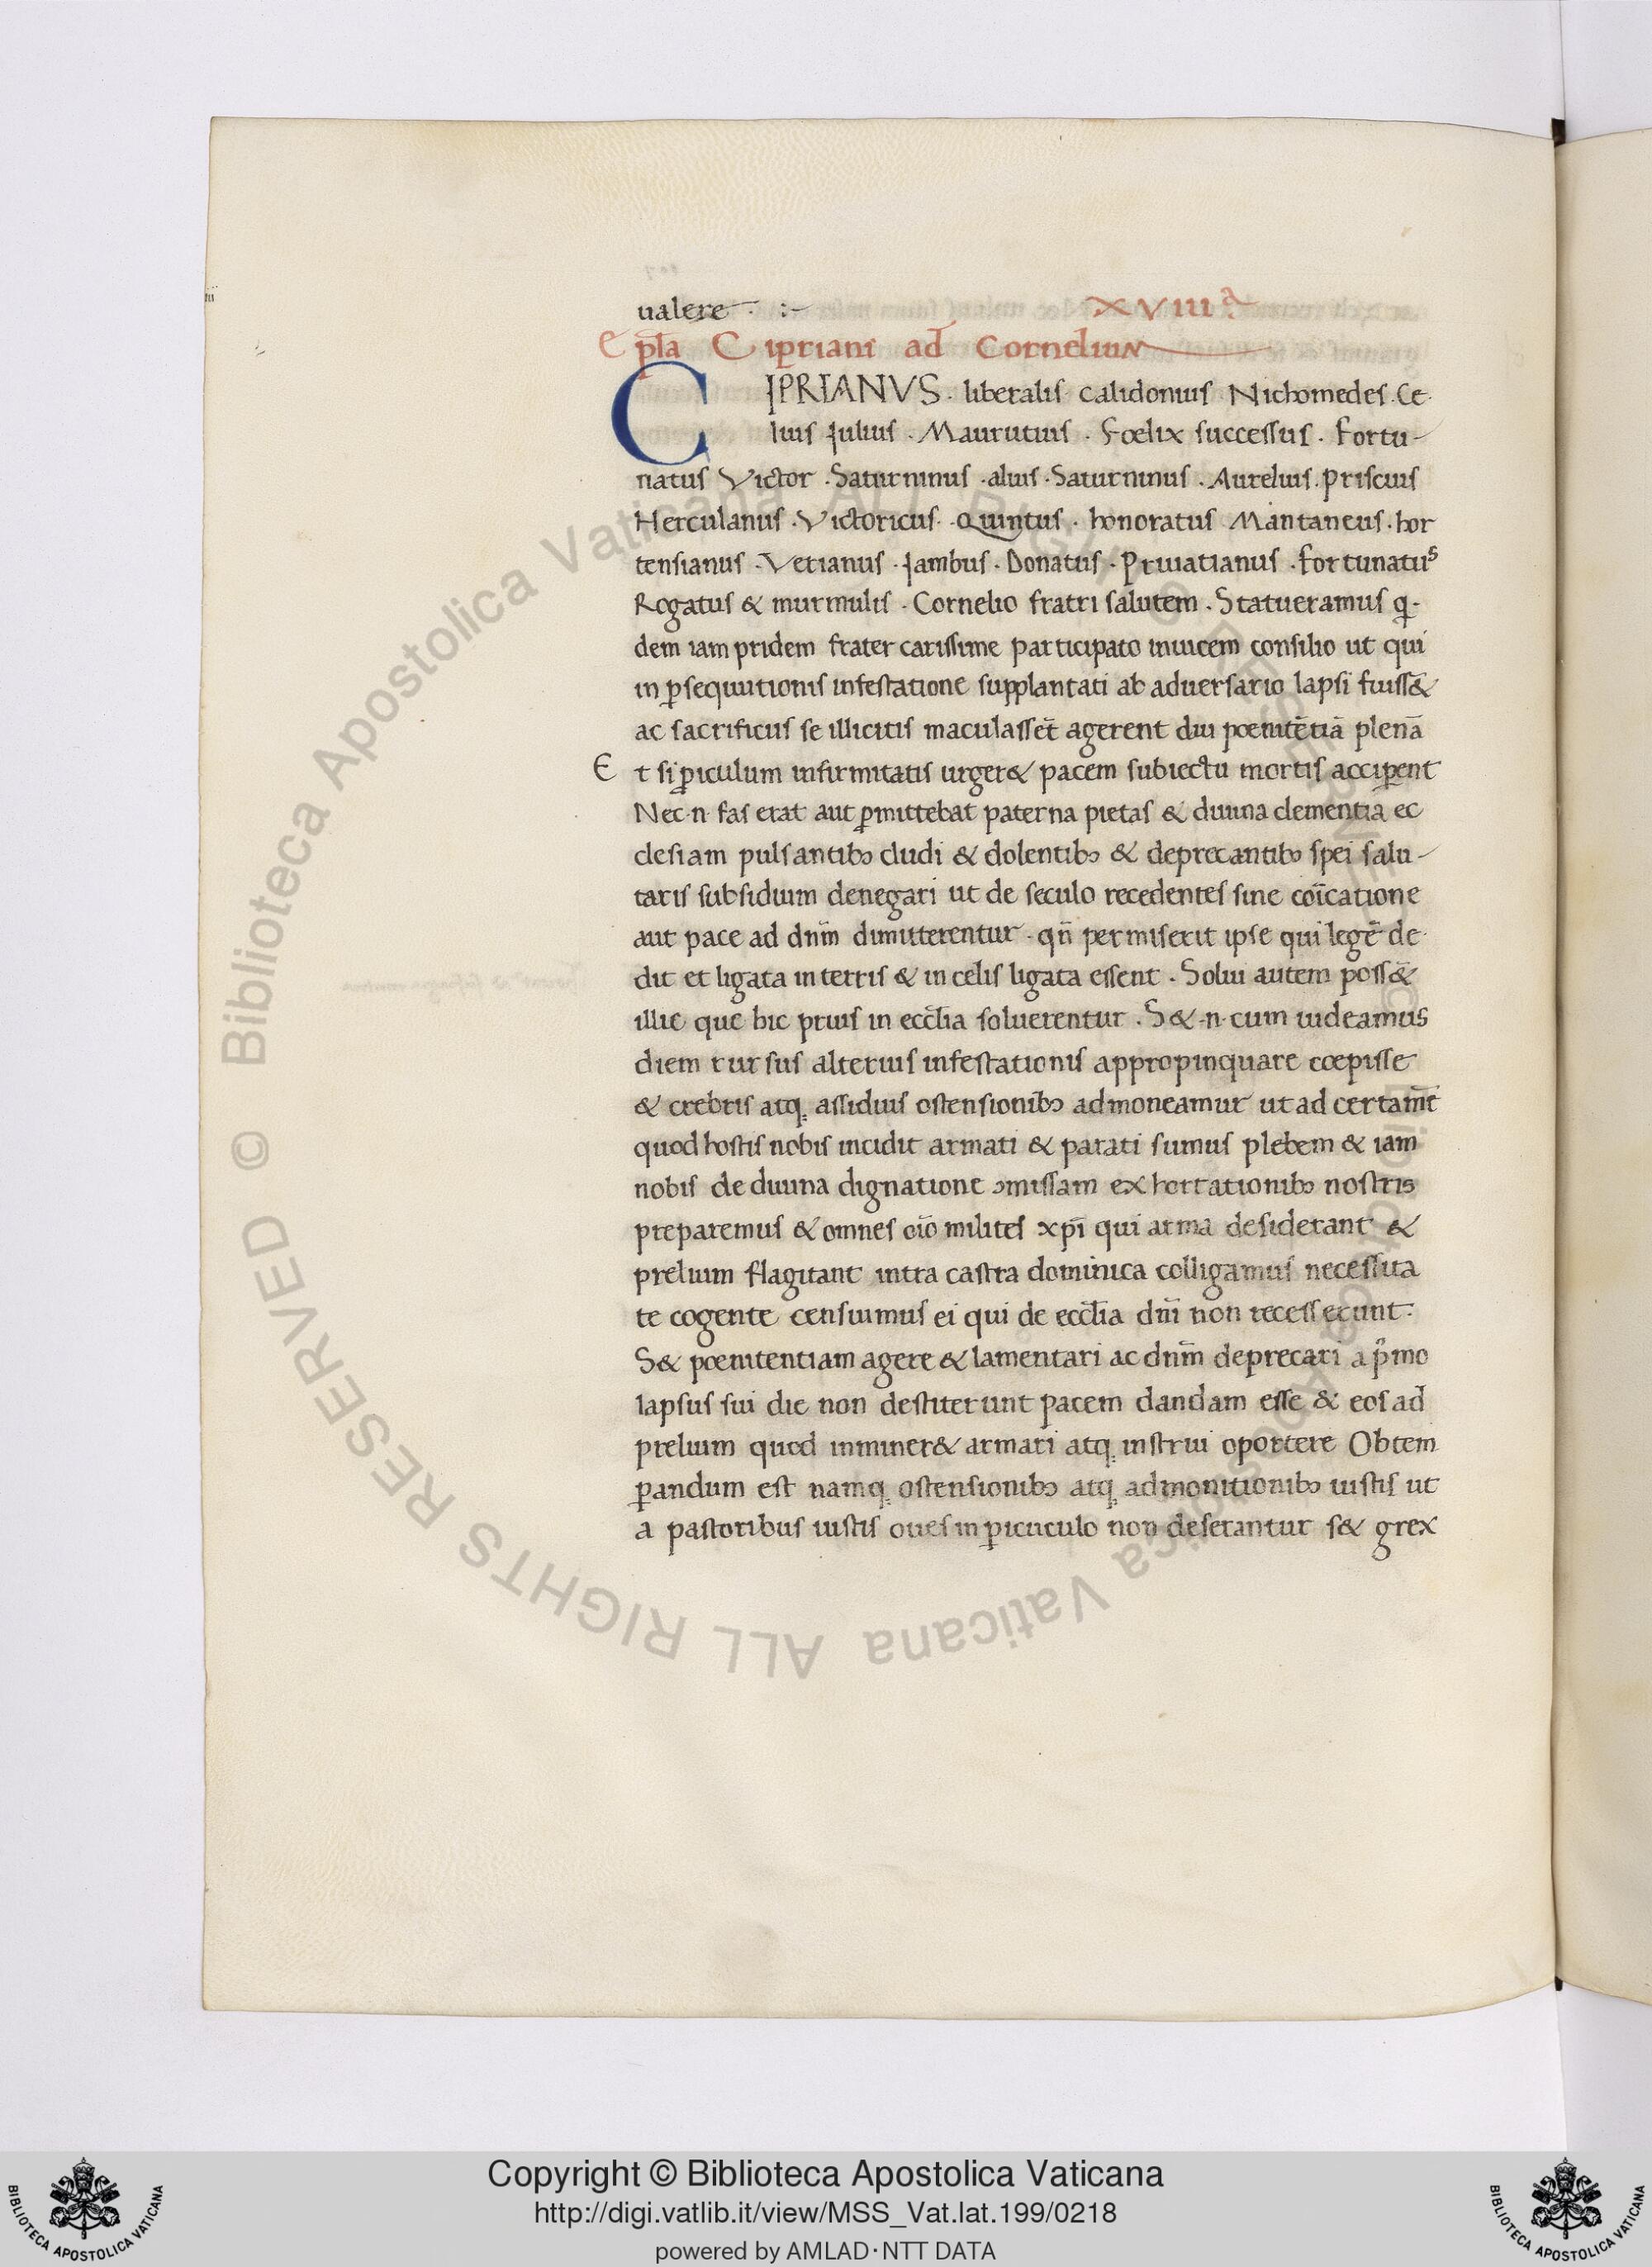 ualere · :~ XVIIIª.
Ep̄la Cipriani ad Cornelium
CIPRIANVS · liberalis calidonius Nichomedes · Ce·
lius Julius · Maurutius · Foelix successus · Fortu-
natus Victor · Saturninus · alius · Saturninus · Aurelius · priscus
Herculanus · Victoricus · Quintus · honoratus Mantaneus · hor
tensianus · Vetianus · Jambus · Donatus · Priuatianus · Fortunatus
Rogatus & murmulis · Cornelio fratri salutem · Statueramus q·
dem iam pridem frater carissime participato inuicem consilio ut qui
in ꝑsequutionis infestatione supplantati ab aduersario lapsi fuiss&̄
ac sacrificiis se illicitis maculasset̄ agerent diu poenitētiā plenā
Et si ꝑiculum infirmitatis urger& pacem subiectu mortis acciꝑent
Nec ·n· fas erat aut ꝑmittebat paterna pietas & diuina clementia ec
clesiam pulsantibꝫ cludi & dolentibꝫ & deprecantibꝫ spei salu-
taris subsidium denegari ut de seculo recedentes sine coīcatione
aut pace ad dn̄m dimitterentur · qn̄ permiserit ipse qui legē de·
dit et ligata in terris & in celis ligata essent · Solui autem poss&̄
illic que hic prius in eccl̄ia soluerentur · S& ·n· cum uideamus
diem rursus alterius infestationis appropinquare coepisse
& crebris atqꝫ assiduis ostensionibꝫ admoneamur ut ad certam̄e
quod hostis nobis incidit armati & parati sumus plebem & iam
nobis de diuina dignatione ꝯmissam exhortationibꝫ nostris
preparemus & omnes oīo milites xp̄i qui arma desiderant &
prelium flagitant intra castra dominica colligamus necessita
te cogente censuimus ei qui de eccl̄ia dn̄i non recesserunt ·
S& poenitentiam agere & lamentari ac dn̄m deprecari a pͥmo
lapsus sui die non destiterunt pacem dandam esse & eos ad
prelium quod inminer& armari atqꝫ instrui oportere Obtem
ꝑandum est namqꝫ ostensionibꝫ atqꝫ admonitionibꝫ iustis ut
a pastoribus iustis oues in ꝑicuculo non deserantur s& grex
© Biblioteca Apostolica Vaticana ALL RIGHTS RESERVED © Biblioteca Apostolica Vaticana ALL RIGHTS RESERVED
Copyright © Biblioteca Apostolica Vaticana
http://digi.vatlib.it/view/MSS_Vat.lat.199/0218
powered by AMLAD·NTT DATA
BIBLIOTECA APOSTOLICA VATICANA
BIBLIOTECA APOSTOLICA VATICANA